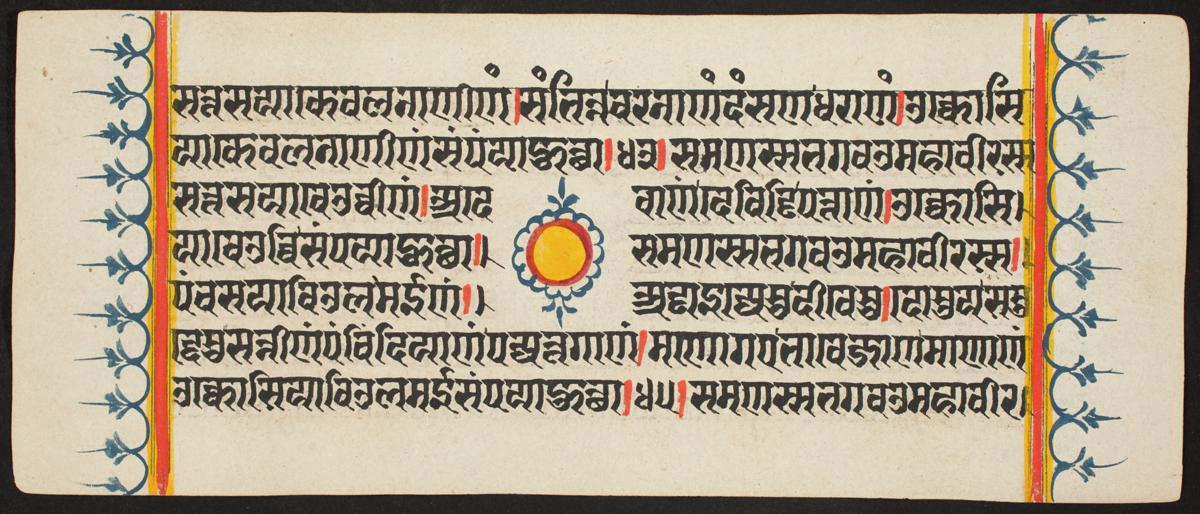 सत्तसया केवलनाणीणं।संभिन्नवरनाणंदंसणधराणं।उक्कोसि
या केवलनाणीणं संपया हुत्था।४३। समणस्स भगवउ महावीरस्स
सत्तसया वेउव्वीणं।अदे वाणं देविड्ढिपत्ताणं।उक्कोसि।
या वेउव्विसंपया हुत्था।। समणस्स भगवउ महावीरस्स।
पंचसया विउलमईणं।। अड्ढाइज्जेसु दीवेसु।दोसु य समु
द्देसु सन्नीणं पंचिंदियाणं पज्जत्तगाणं।मणोगए भावे जाणमाणाणं
उक्कोसिया विउलमईसंपया हुत्था।४५। समणस्स भगवउ महावीर।